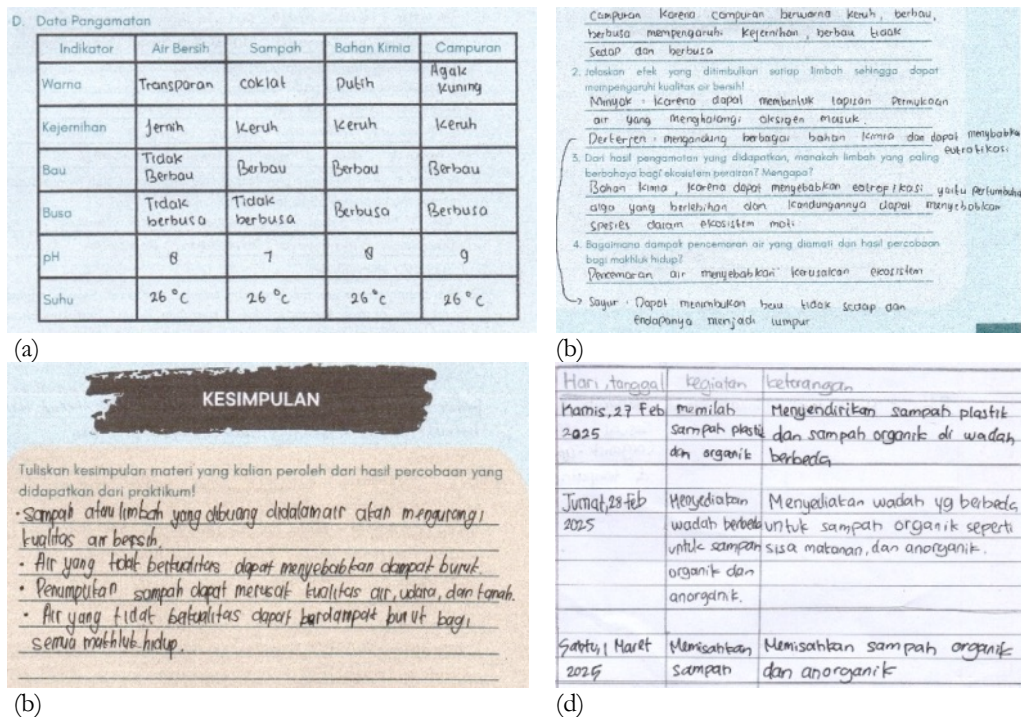 D. Data Pengamatan
Indikator Air Bersih Sampah Bahan Kimia Campuran
Warna Transparan coklat Putih Agak kuning
Kejernihan Jernih Keruh Keruh Keruh
Bau Tidak Berbau Berbau Berbau Berbau
Busa Tidak berbusa Tidak berbusa Berbusa Berbusa
pH 8 7 8 9
Suhu 26 °C 26 °C 26 °C 26 °C
(a)
Campuran karena campuran berwarna keruh, berbau,
berbusa mempengaruhi kejernihan, berbau tidak
sedap dan berbusa
2. Jelaskan efek yang ditimbulkan setiap limbah sehingga dapat
mempengaruhi kualitas air bersih!
Minyak : karena dapat membentuk lapisan permukaan
air yang menghalangi oksigen masuk.
Derterjen : mengandung berbagai bahan kimia dan dapat menyebabka
eutrofikasi
3. Dari hasil pengamatan yang didapatkan, manakah limbah yang paling
berbahaya bagi ekosistem perairan? Mengapa?
Bahan kimia, karena dapat menyebabkan eotrofikasi yaitu pertumbuha
alga yang berlebihan dan kandungannya dapat menyebabkan
spesies dalam ekosistem mati
4. Bagaimana dampak pencemaran air yang diamati dari hasil percobaan
bagi makhluk hidup?
Pencemaran air menyebabkan kerusakan ekosistem
Sayur : Dapat menimbulkan bau tidak sedap dan
Endapanya menjadi lumpur
(b)
KESIMPULAN
Tuliskan kesimpulan materi yang kalian peroleh dari hasil percobaan yang
didapatkan dari praktikum!
• Sampah atau limbah yang dibuang didalam air akan mengurangi
kualitas air bersih.
• Air yang tidak berkualitas dapat menyebabkan dampak buruk.
• Penumpukan sampah dapat merusak kualitas air, udara, dan tanah.
• Air yang tidak berkualitas dapat berdampak buruk bagi
semua makhluk hidup.
(b)
Hari, tanggal kegiatan keterangan
Kamis, 27 Feb memilah Menyendirikan sampah plastik
2025 sampah plastik dan sampah organik di wadah
dan organik berbeda
Jumat, 28 Feb Menyediakan Menyediakan wadah yg berbeda
2025 wadah berbeda untuk sampah organik seperti
untuk sampah sisa makanan, dan anorganik.
organik dan
anorganik.
Sabtu, 1 Maret Memisahkan Memisahkan sampah organik
2025 sampah dan anorganik
(d)